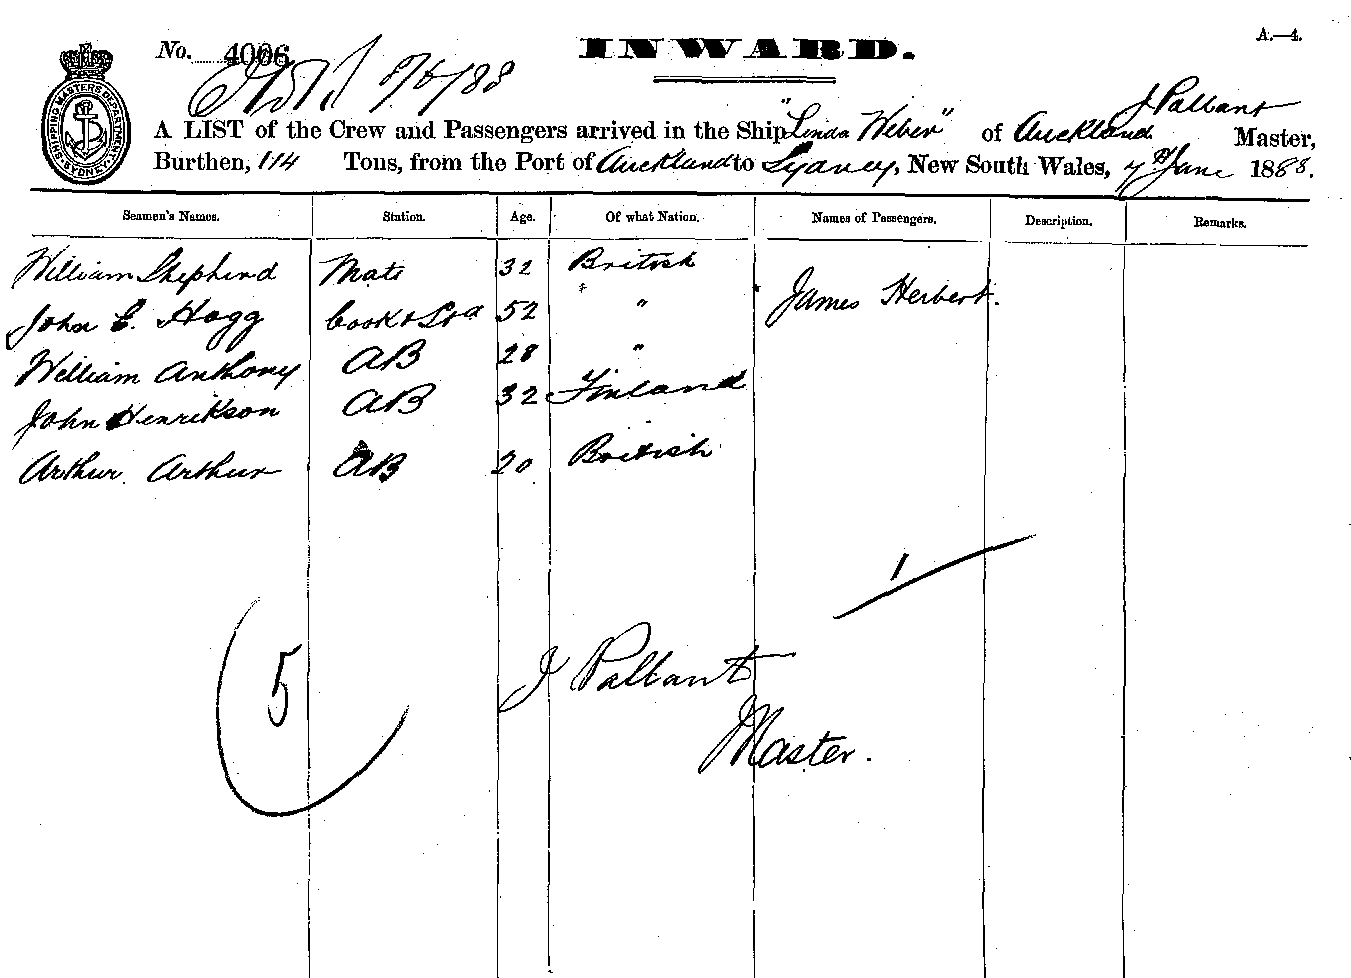 No. 4006
INWARD.
A.—4.
8/6/88
SHIPPING MASTERS DEPARTMENT SYDNEY
J Pallant
A LIST of the Crew and Passengers arrived in the Ship "Linda Weber" of Auckland Master,
Burthen, 114 Tons, from the Port of Auckland to Sydney, New South Wales, 7th June 1888.
Seamen's Names. Station. Age. Of what Nation. Names of Passengers. Description. Remarks.
William Shepherd Mate 32 British
James Herbert.
John E. Hogg Cook & Std 52 "
William Anthony AB 28 "
John Henrikson AB 32 Finland
Arthur Arthur AB 20 British
1
5
J Pallant
Master.